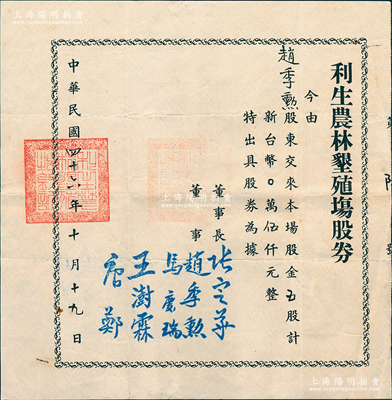 上海陽明拍賣
www.yangmingauction.com
利生農林墾殖場股券
今由
趙季勲股東交來本場股金五股計
新台幣〇萬伍仟元整
特出具股券為據
董事長
董事
趙季勲
馬慶瑞
王澍霖
中華民國四十六年十月十九日
上海陽明拍賣
www.yangmingauction.com